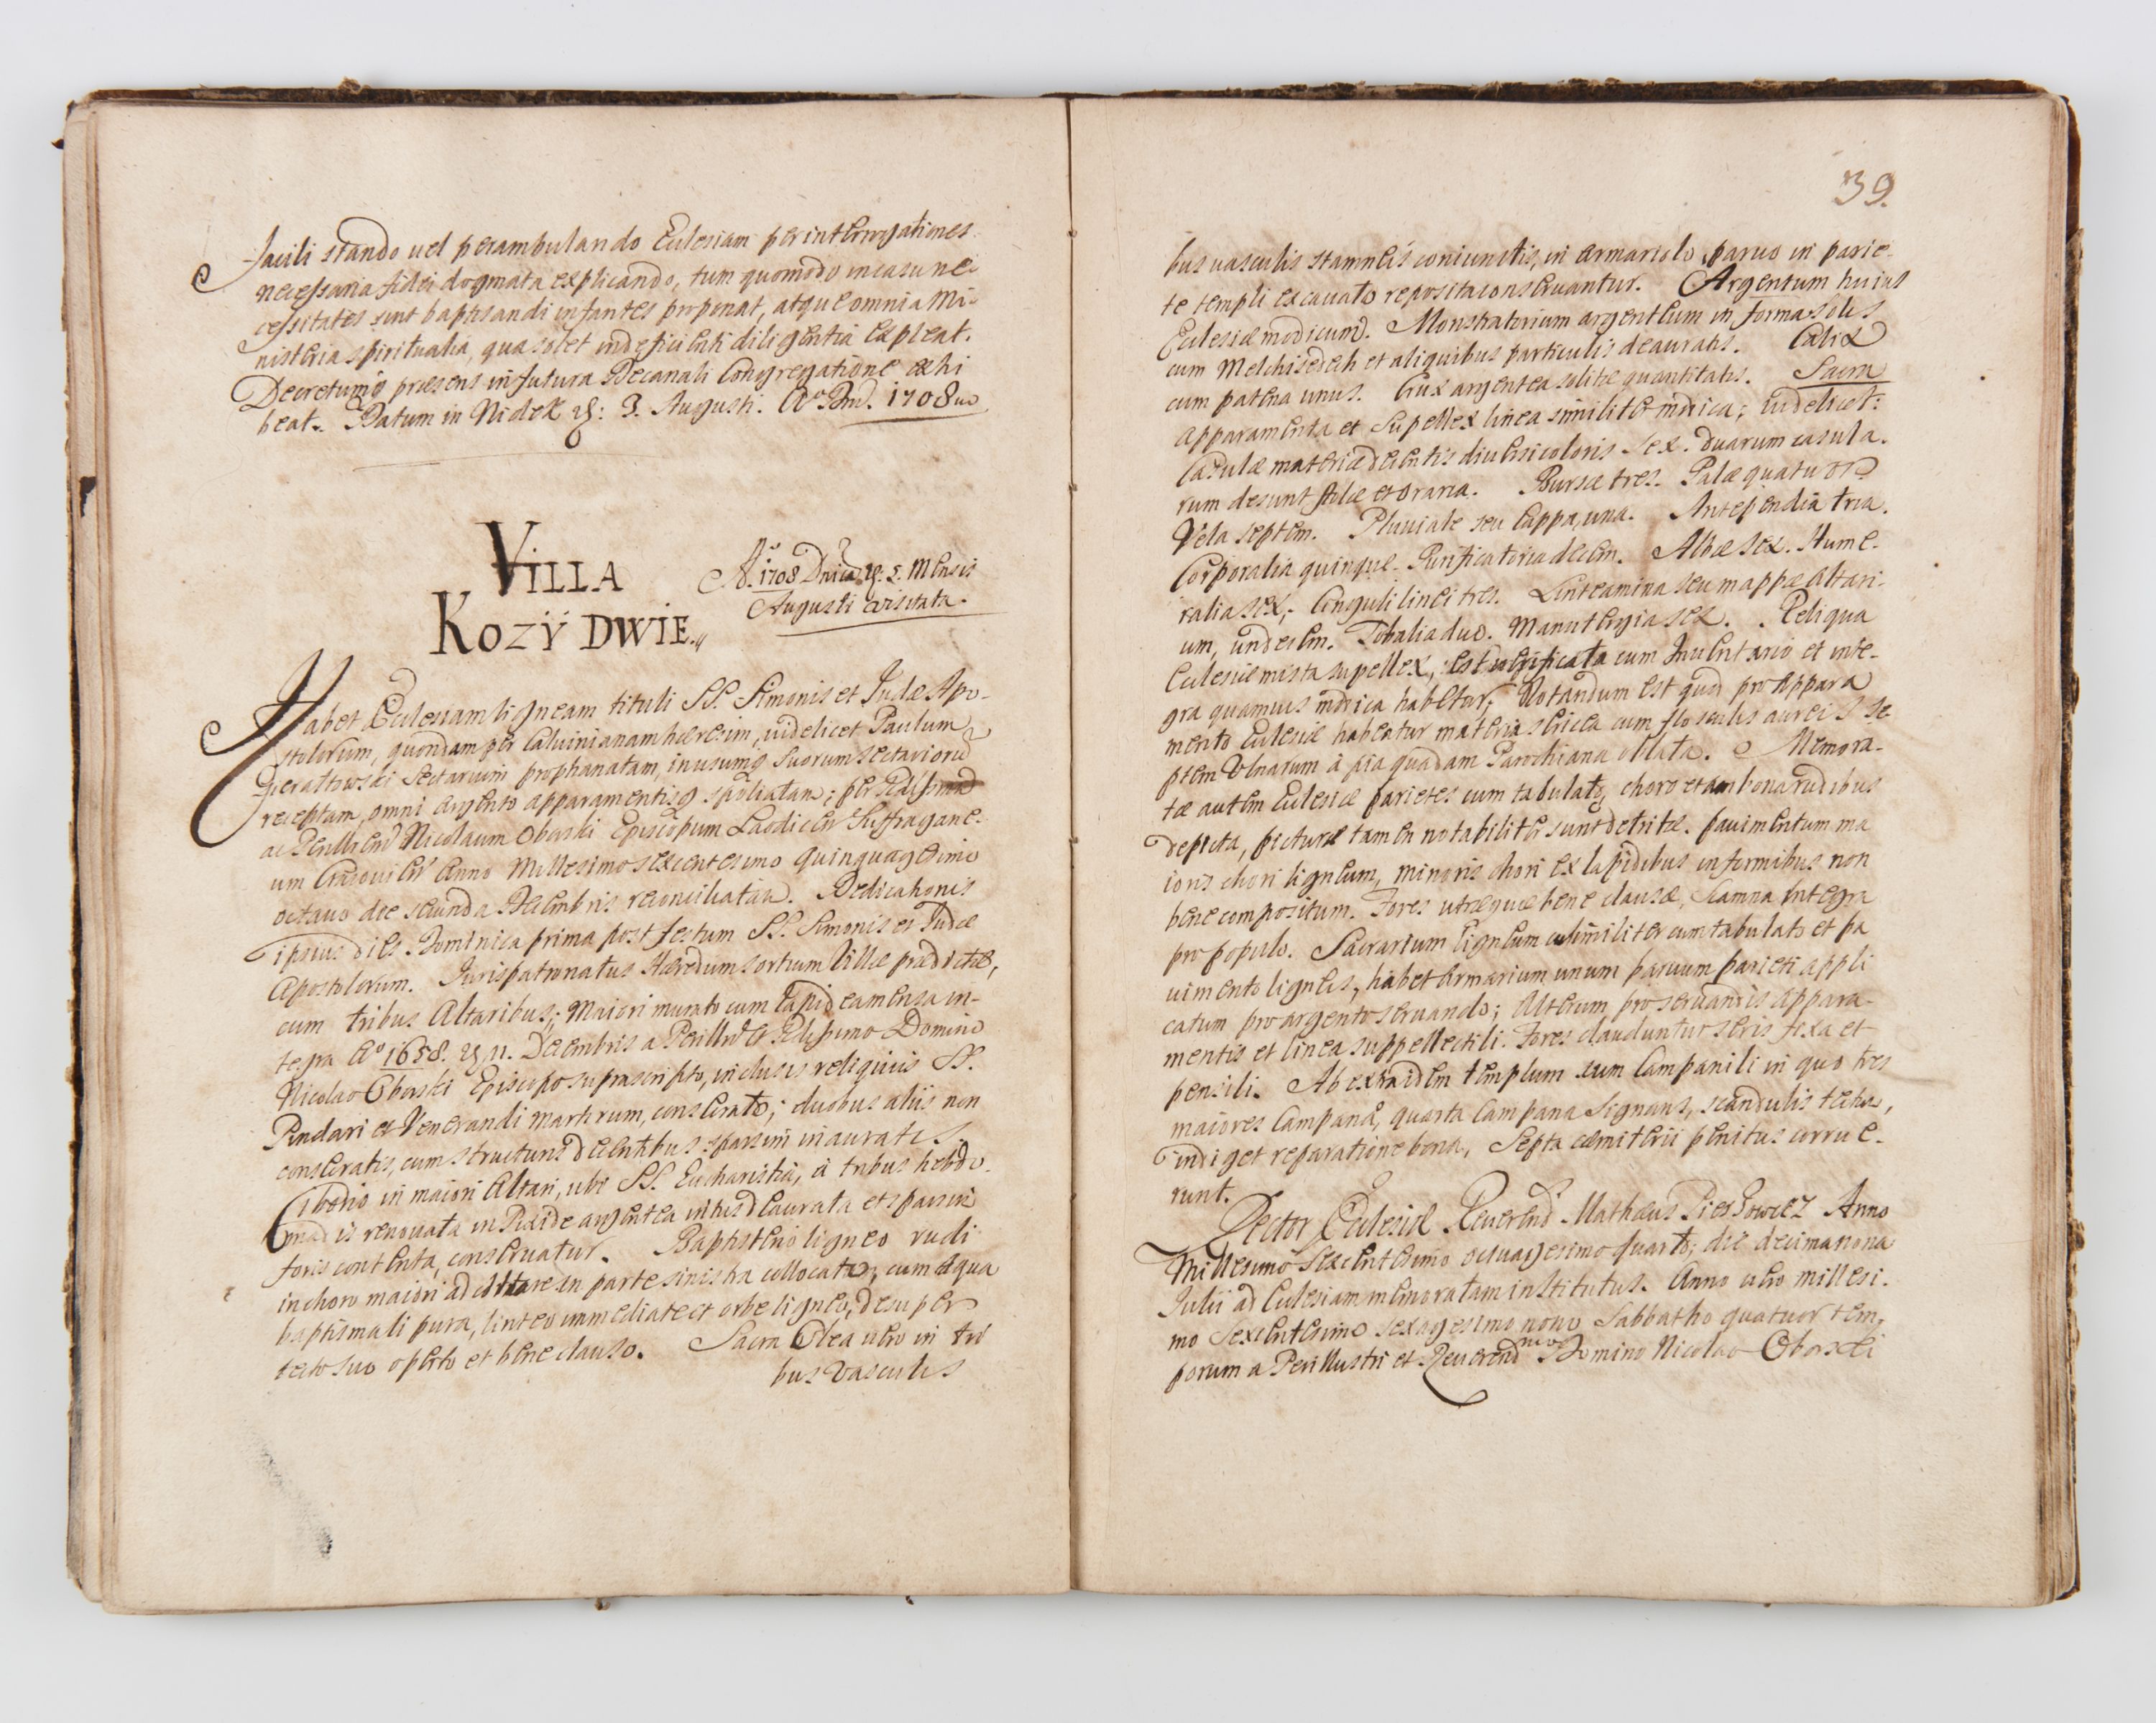 facili stando uel perambulando Eclesiam per interrogationes
necessaria fidei dogmata explicando, tum quomodo in casu ne-
cessitatis sint baptisandi infantes proponat, atque omnia Mi-
nisteria spiritualia, qua solet indeficienti diligentia expleat.
Decretumq præsens in futura Decanali Congregatione exhi
beat. Datum in Nidek 3. Augusti. Aº Dni. 1708
VILLA
KOZŸ DWIE.
Aº 1708 5. Mensis
Augusti visitata.
Habet Eclesiam ligneam tituli SS. Simonis et Judæ Apo-
stolorum, quondam per Caluinianam hæresim, uidelicet Paulum
Gierałtowski sectarium prophanatam, in usumq suorum sectarioru
receptam, omni argento apparamentisq spoliatam; per
ac Nicolaum Oborski Episcopum Laodicen Suffragane-
um Cracouien Anno Millesimo sexcentesimo quinquagesimo
octauo die secunda Decembris reconciliatam. Dedicationis
ipsius dies Dominica prima post festum SS. Simonis et Judæ
Apostolorum. Jurispatronatus Hæredum sortium Villæ prædictæ,
cum tribus Altaribus; Maiori murato cum lapidea mensa in-
tegra Aº 1658. 11. Decembris a Perillri et Domino
Nicolao Oborski Episcopo suprascripto, inclusis reliquiis SS.
Pindari et Venerandi martirum, consecrato; duobus aliis non
consecratis, cum structuris decentibus sparsim inauratis,
Ciborio in maiori Altari, ubi SS. Eucharistia, à tribus hebdo-
madis renouata in Pixide argentea intus deaurata et sparsim
foris contenta, conseruatur. Baptisterio ligneo rudi
in choro maiori ad altare in parte sinistra collocato, cum aqua
baptismali pura, linteo immediate et orbe ligneo, desuper
tecto suo operto et bene clauso. Sacra Olea uero in tri
bus vasculis
39.
bus uasculis stamneis coniunctis, in armariolo paruo in parie-
te templi excauato reposita conseruantur. Argentum huius
Eclesiæ modicum. Monstratorium argenteum in forma solis
cum Melchisedech et aliquibus particulis deauratis. Calix
cum patena unus. Crux argentea solitæ quantitatis. Sacra
Apparamenta et Supellex linea similiter modica; uidelicet:
Casulæ materiæ decentis diuersicoloris sex. duarum casula-
rum desunt stolæ et oraria. Bursæ tres. Palæ quatuor
Vela septem. Pluuiale seu Cappa, una. Antependia tria.
Corporalia quinque. Purificatoria decem. Albæ sex. Hume-
ralia sex; Cinguli linei tres. Linteamina seu mappæ altari-
um, undecim. Tobalia duo. Manutergia sex. Reliqua
Eclesiæ mista supellex, est uerificata cum Inuentario et inte-
gra quamuis modica habetur; Notandum est quod pro Appara
mento Eclesiæ habeatur materia sericea cum flosculis aureis se-
ptem Ulnarum à pia quadam Parochiana oblata. Memora-
tæ autem Eclesiæ parietes cum tabulato, choro et ambona rudibus
depicta, picturæ tamen notabiliter sunt detritæ. pauimentum ma
ioris chori ligneum, minoris chori ex lapidibus informibus non
bene compositum. Fores utræque bene clausæ, scamna integra
pro populo. Sacrarium ligneum consimiliter cum tabulato et pa
uimento ligneis, habet armarium unum paruum parieti appli
catum pro argento seruando; alterum pro seruandis appara-
mentis et linea suppellectili. Fores clauduntur seris fixa et
pensili. Ab extra idem templum cum Campanili in quo tres
maiores Campanæ, quarta Campana signans, scandulis tectis,
indiget reparatione bona, Septa cæmiterii penitus corrue-
runt.
Rector Eclesiæ Reuerend Mathæus Anno
Millesimo sexcentesimo octuagesimo quarto; die decimanona
Julii ad Eclesiam memoratam institutus. Anno uero millesi-
mo Sexcentesimo sexagesimo nono Sabbatho quatuor tem-
porum a Perillustri et Reuerendmo Domino Nicolao Oborski